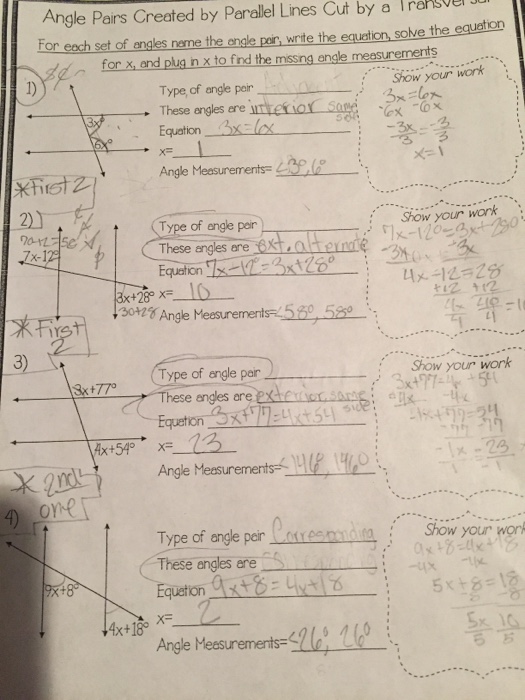 Angle Pairs Created by Parallel Lines Cut by a
For each set of angles name the angle pair, write the equation, solve the equation
for x, and plug in x to find the missing angle measurements
1)
3x°
6x°
Type of angle pair
These angles are interior same side
Equation 3x=6x
x= 1
Angle Measurements= <3°, 6°
Show your work
3x=6x
-6x -6x
-3x = -3
3 3
x=1
*First 2
2)
7x-12°
3x+28°
Type of angle pair
These angles are ext. alternate
Equation 7x-12°=3x+28°
x= 10
Angle Measurements= <58°, 58°
Show your work
7x-12°=3x+28°
-3x -3x
4x-12=28
+12 +12
*First
2
3)
3x+77°
4x+54°
Type of angle pair
These angles are exterior same side
Equation 3x+77=4x+54
x= 23
Angle Measurements= <146°, 146°
Show your work
* 2nd
one
4)
9x+8°
4x+18°
Type of angle pair Corresponding
These angles are
Equation 9x+8=4x+18
x= 2
Angle Measurements= <26°, 26°
Show your work
9x+8=4x+18
-4x -4x
5x+8=18
5x 10
5 5